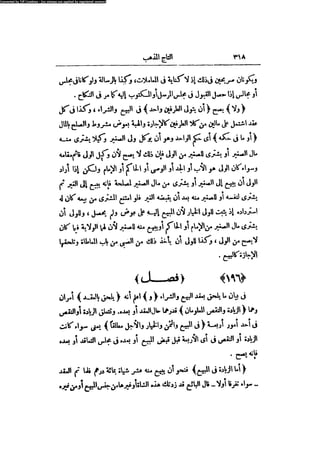 Converted by TIFF Combine - (no stamps are applied by registered version)
٣١٨ التاج المذهب
ويكونان صريحين في ذلك إذ لا كناية في المعاملات، وكذا بالرسالة ولو كانا في مجلس
أو مجالس إذا حصل القبول في مجلس المرسل أو المكتوب إليه كما مر في النكاح .
( ولا ) يصح ( أن يتولى الطرفين واحد ) في البيع والشراء ، وكذا في كل
عقد اشتمل على مالين من كلا الطرفين كالإجارة والهبة بعوض مشروط والصلح بالمال
( أو ما في حكمه ) أي حكم الواحد وهو أن يوكل ولي الصغير من يشتري منه
مال الصغير أو يشتري للصغير من ولي الصغير فإن ذلك لا يصح لأن وكيل الولي قائم مقامه
وسواء كان الولي هو الأب أو الجد أو الوصي أو الحاكم أو الإمام ولكن إذا أراد
الولي أن يبيع إلى الصغير أو يشتري من مال الصغير لمصلحة فإنه يبيع إلى الغير ثم
يشتري لنفسه أو للصغير منه بعد أن يقبضه الغير فلو امتنع المشتري من بيعه كان له
استرداده إذ يثبت للولي الخيار لأن البيع إليه على عوض ولم يحصل ، وللولي أن
يشتري مال الصغير من الإمام أو الحاكم أو يبيع منه للصغير لأن لهما الولاية فان كان
الولي من لا يصح ، وكذا للولي أن يأخذ ذلك من الصبي من باب المعاطاة وتلحقها
الإجازة كالبيع .
﴿١٩٦﴾ ( فصــــل )
في بيان ما يلحق بعقد البيع والشراء ( و ) اعلم أنه ( يلحق بالعقد ) أمران
وهما ( الزيادة والنقص المعلومان ) قدرهما حال العقد أو بعده. وتتعلق الزيادة أو النقص
في أحد أمور أربعة ( في المبيع والثمن والخيار والأجل مطلقاً ) يعني سواء كانت
الزيادة أو النقص في أي الأربعة قبل قبض المبيع أو بعده في مجلس التعاقد أو بعده
فإنه يصح .
( أما ) الزيادة ( في المبيع ) فنحو أن يبيع منه عشر شياه بمائة درهم فلما تم العقد
- سواء تفرقا أو لا - قال البائع قد زدتك هذه الشاة أو غيرها من جنس المبيع أو من غيره